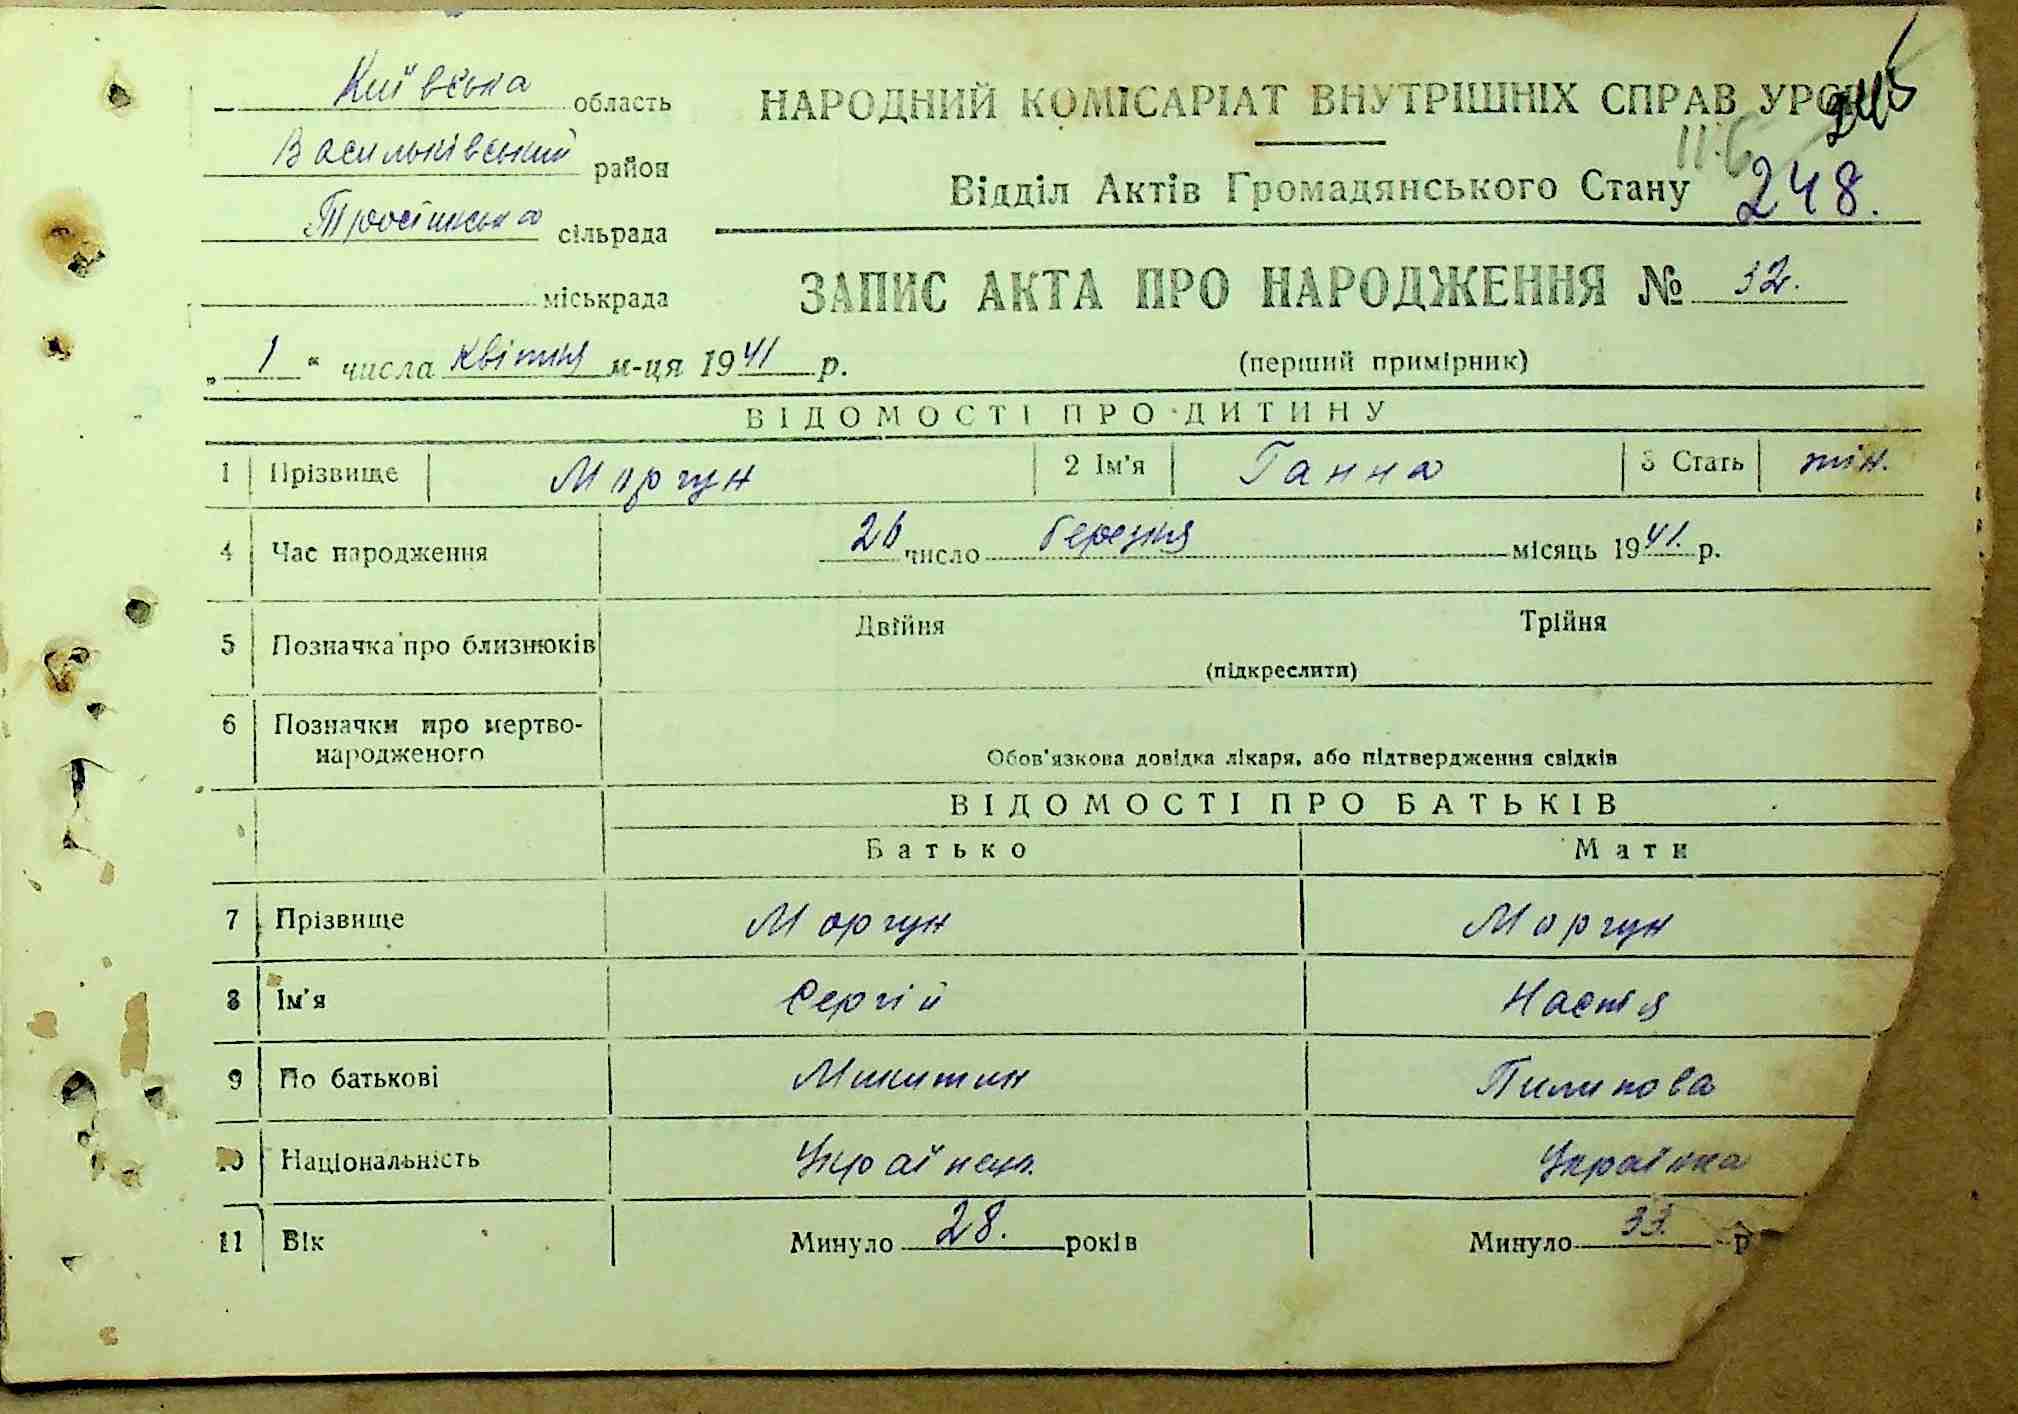 Київська область
Васильківський район
Тростинська сільрада
міськрада
„ 1 “ числа квітня м-ця 1941 р.
НАРОДНИЙ КОМІСАРІАТ ВНУТРІШНІХ СПРАВ УРСР
245
116
Відділ Актів Громадянського Стану 248.
ЗАПИС АКТА ПРО НАРОДЖЕННЯ № 32.
(перший примірник)
ВІДОМОСТІ ПРО ДИТИНУ
1 Прізвище Моргун 2 Ім'я Ганна 3 Стать жін.
4 Час народження 26 число березня місяць 1941. р.
5 Позначка про близнюків Двійня Трійня
(підкреслити)
6 Позначки про мертво-
народженого
Обов'язкова довідка лікаря, або підтвердження свідків
ВІДОМОСТІ ПРО БАТЬКІВ
Батько Мати
7 Прізвище Моргун Моргун
8 Ім'я Сергій Настя
9 По батькові Микитин Пилипова
10 Національність Українец. Українка
11 Вік Минуло 28. років Минуло 33. р